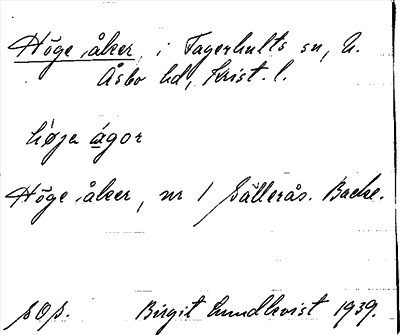 Höge åker, i Fagerhults sn, N.
Åsbo hd, Krist. l.
høja ágor
Höge åker, nr 1 Källerås. Backe.
Birgit Lundkvist 1939.